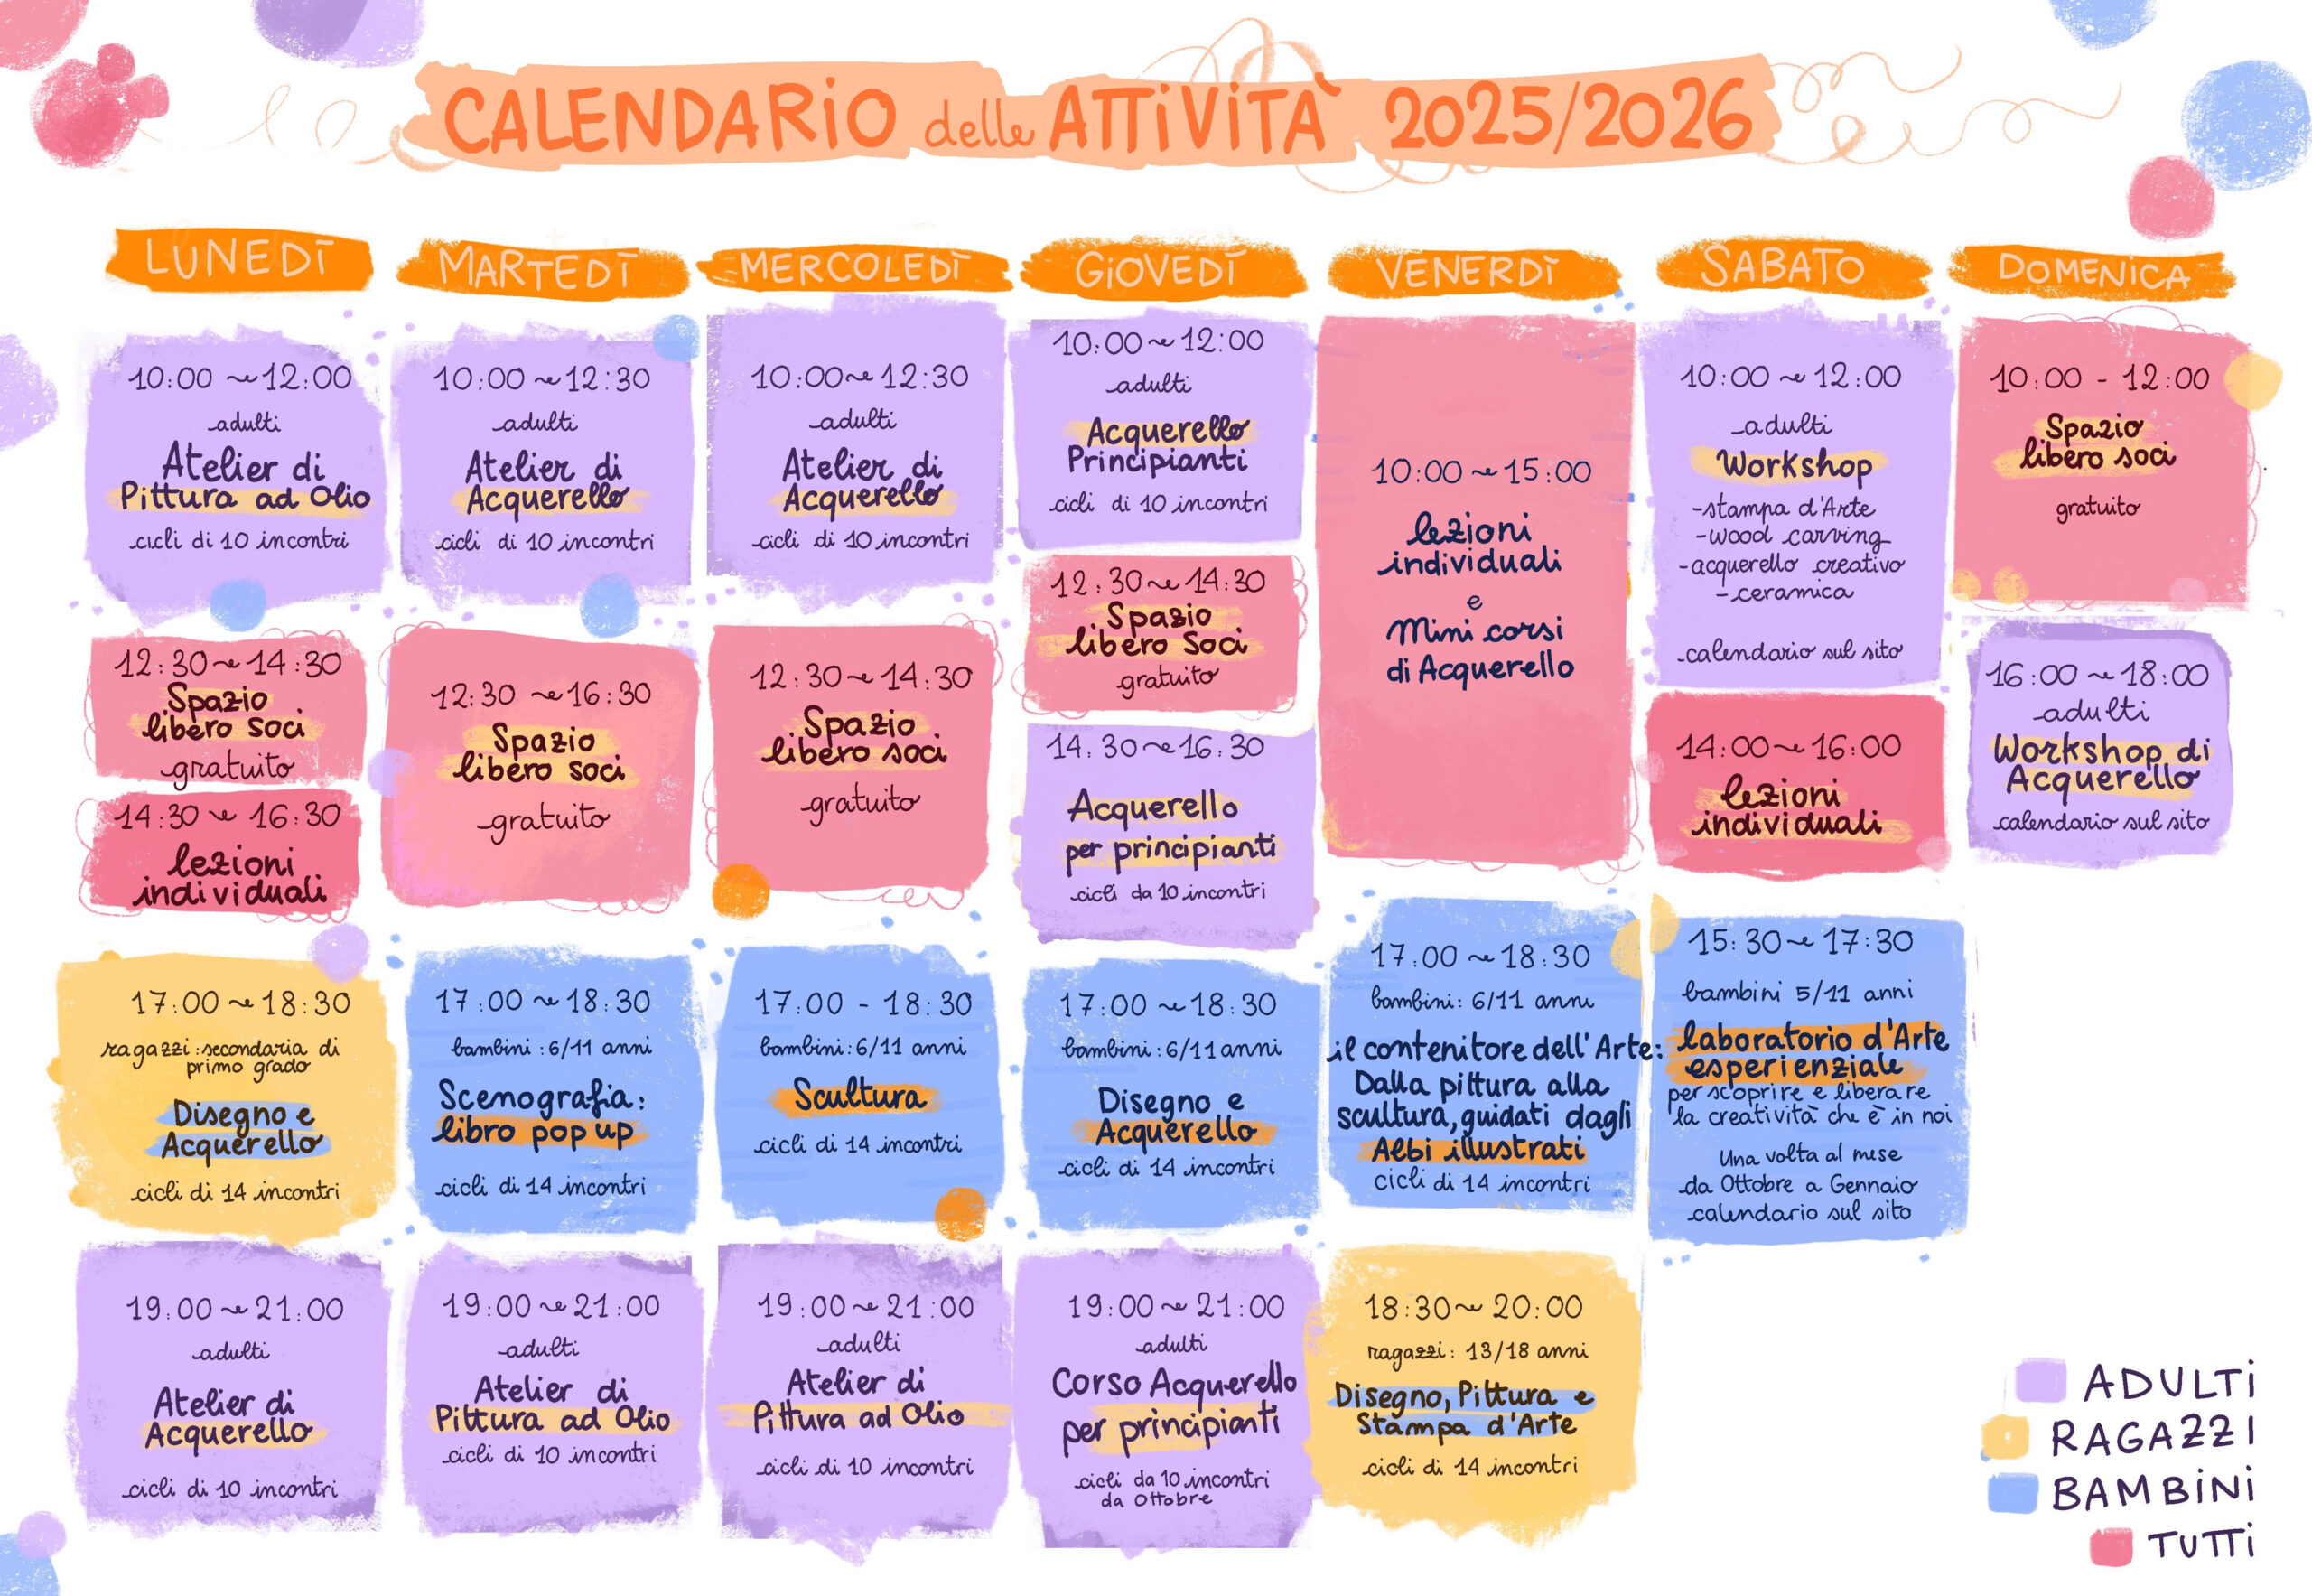 CALENDARiO delle ATTiViTÀ 2025/2026
LUNEDÌ
10:00 ~ 12:00
adulti
Atelier di
Pittura ad Olio
cicli di 10 incontri
12:30 ~ 14:30
Spazio
libero soci
gratuito
14:30 ~ 16:30
lezioni
individuali
17:00 ~ 18:30
ragazzi: secondaria di
primo grado
Disegno e
Acquerello
cicli di 14 incontri
19:00 ~ 21:00
adulti
Atelier di
Acquerello
cicli di 10 incontri
MARTEDÌ
10:00 ~ 12:30
adulti
Atelier di
Acquerello
cicli di 10 incontri
12:30 ~ 16:30
Spazio
libero soci
gratuito
17:00 ~ 18:30
bambini: 6/11 anni
Scenografia:
libro pop up
cicli di 14 incontri
19:00 ~ 21:00
adulti
Atelier di
Pittura ad Olio
cicli di 10 incontri
MERCOLEDÌ
10:00 ~ 12:30
adulti
Atelier di
Acquerello
cicli di 10 incontri
12:30 ~ 14:30
Spazio
libero soci
gratuito
17:00 - 18:30
bambini: 6/11 anni
Scultura
cicli di 14 incontri
19:00 ~ 21:00
adulti
Atelier di
Pittura ad Olio
cicli di 10 incontri
GiOVEDÌ
10:00 ~ 12:00
adulti
Acquerello
Principianti
cicli di 10 incontri
12:30 ~ 14:30
Spazio
libero Soci
gratuito
14.30 ~ 16:30
Acquerello
per principianti
cicli da 10 incontri
17:00 ~ 18:30
bambini: 6/11 anni
Disegno e
Acquerello
cicli di 14 incontri
19:00 ~ 21:00
adulti
Corso Acquerello
per principianti
cicli da 10 incontri
da Ottobre
VENERDÌ
10:00 ~ 15:00
lezioni
individuali
e
Mini corsi
di Acquerello
17:00 ~ 18:30
bambini: 6/11 anni
il contenitore dell'Arte:
Dalla pittura alla
scultura, guidati dagli
Albi illustrati
cicli di 14 incontri
18:30 ~ 20:00
ragazzi: 13/18 anni
Disegno, Pittura e
Stampa d'Arte
cicli di 14 incontri
SABATO
10:00 ~ 12:00
adulti
Workshop
-stampa d'Arte
-wood carving
-acquerello creativo
-ceramica
calendario sul sito
14:00 ~ 16:00
lezioni
individuali
15:30 ~ 17:30
bambini 5/11 anni
laboratorio d'Arte
esperienziale
per scoprire e liberare
la creatività che è in noi
Una volta al mese
da Ottobre a Gennaio
calendario sul sito
DOMENiCA
10:00 - 12:00
Spazio
libero soci
gratuito
16:00 ~ 18:00
adulti
Workshop di
Acquerello
calendario sul sito
ADULTi
RAGAZZI
BAMBiNi
TUTTi